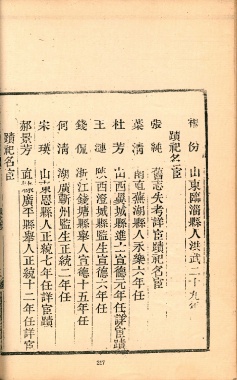 份 山東臨淄縣人洪武二十九年
蹟祀名宦
張純 舊志失考詳宦蹟祀名宦
葉清 南直蕪湖縣人永樂六年任
杜芳 山西翼城縣進士宣德元年任詳宦蹟
王漣 陝西澄城縣監生宣德六年任
錢侃 浙江錢塘縣人宣德十五年任
何清 湖廣蘄州監生正統二年任
宋瑛 山東恩縣人正統七年任詳宦蹟
郝景芳 直隸廣平縣舉人正統十二年任詳宦
蹟祀名宦
227